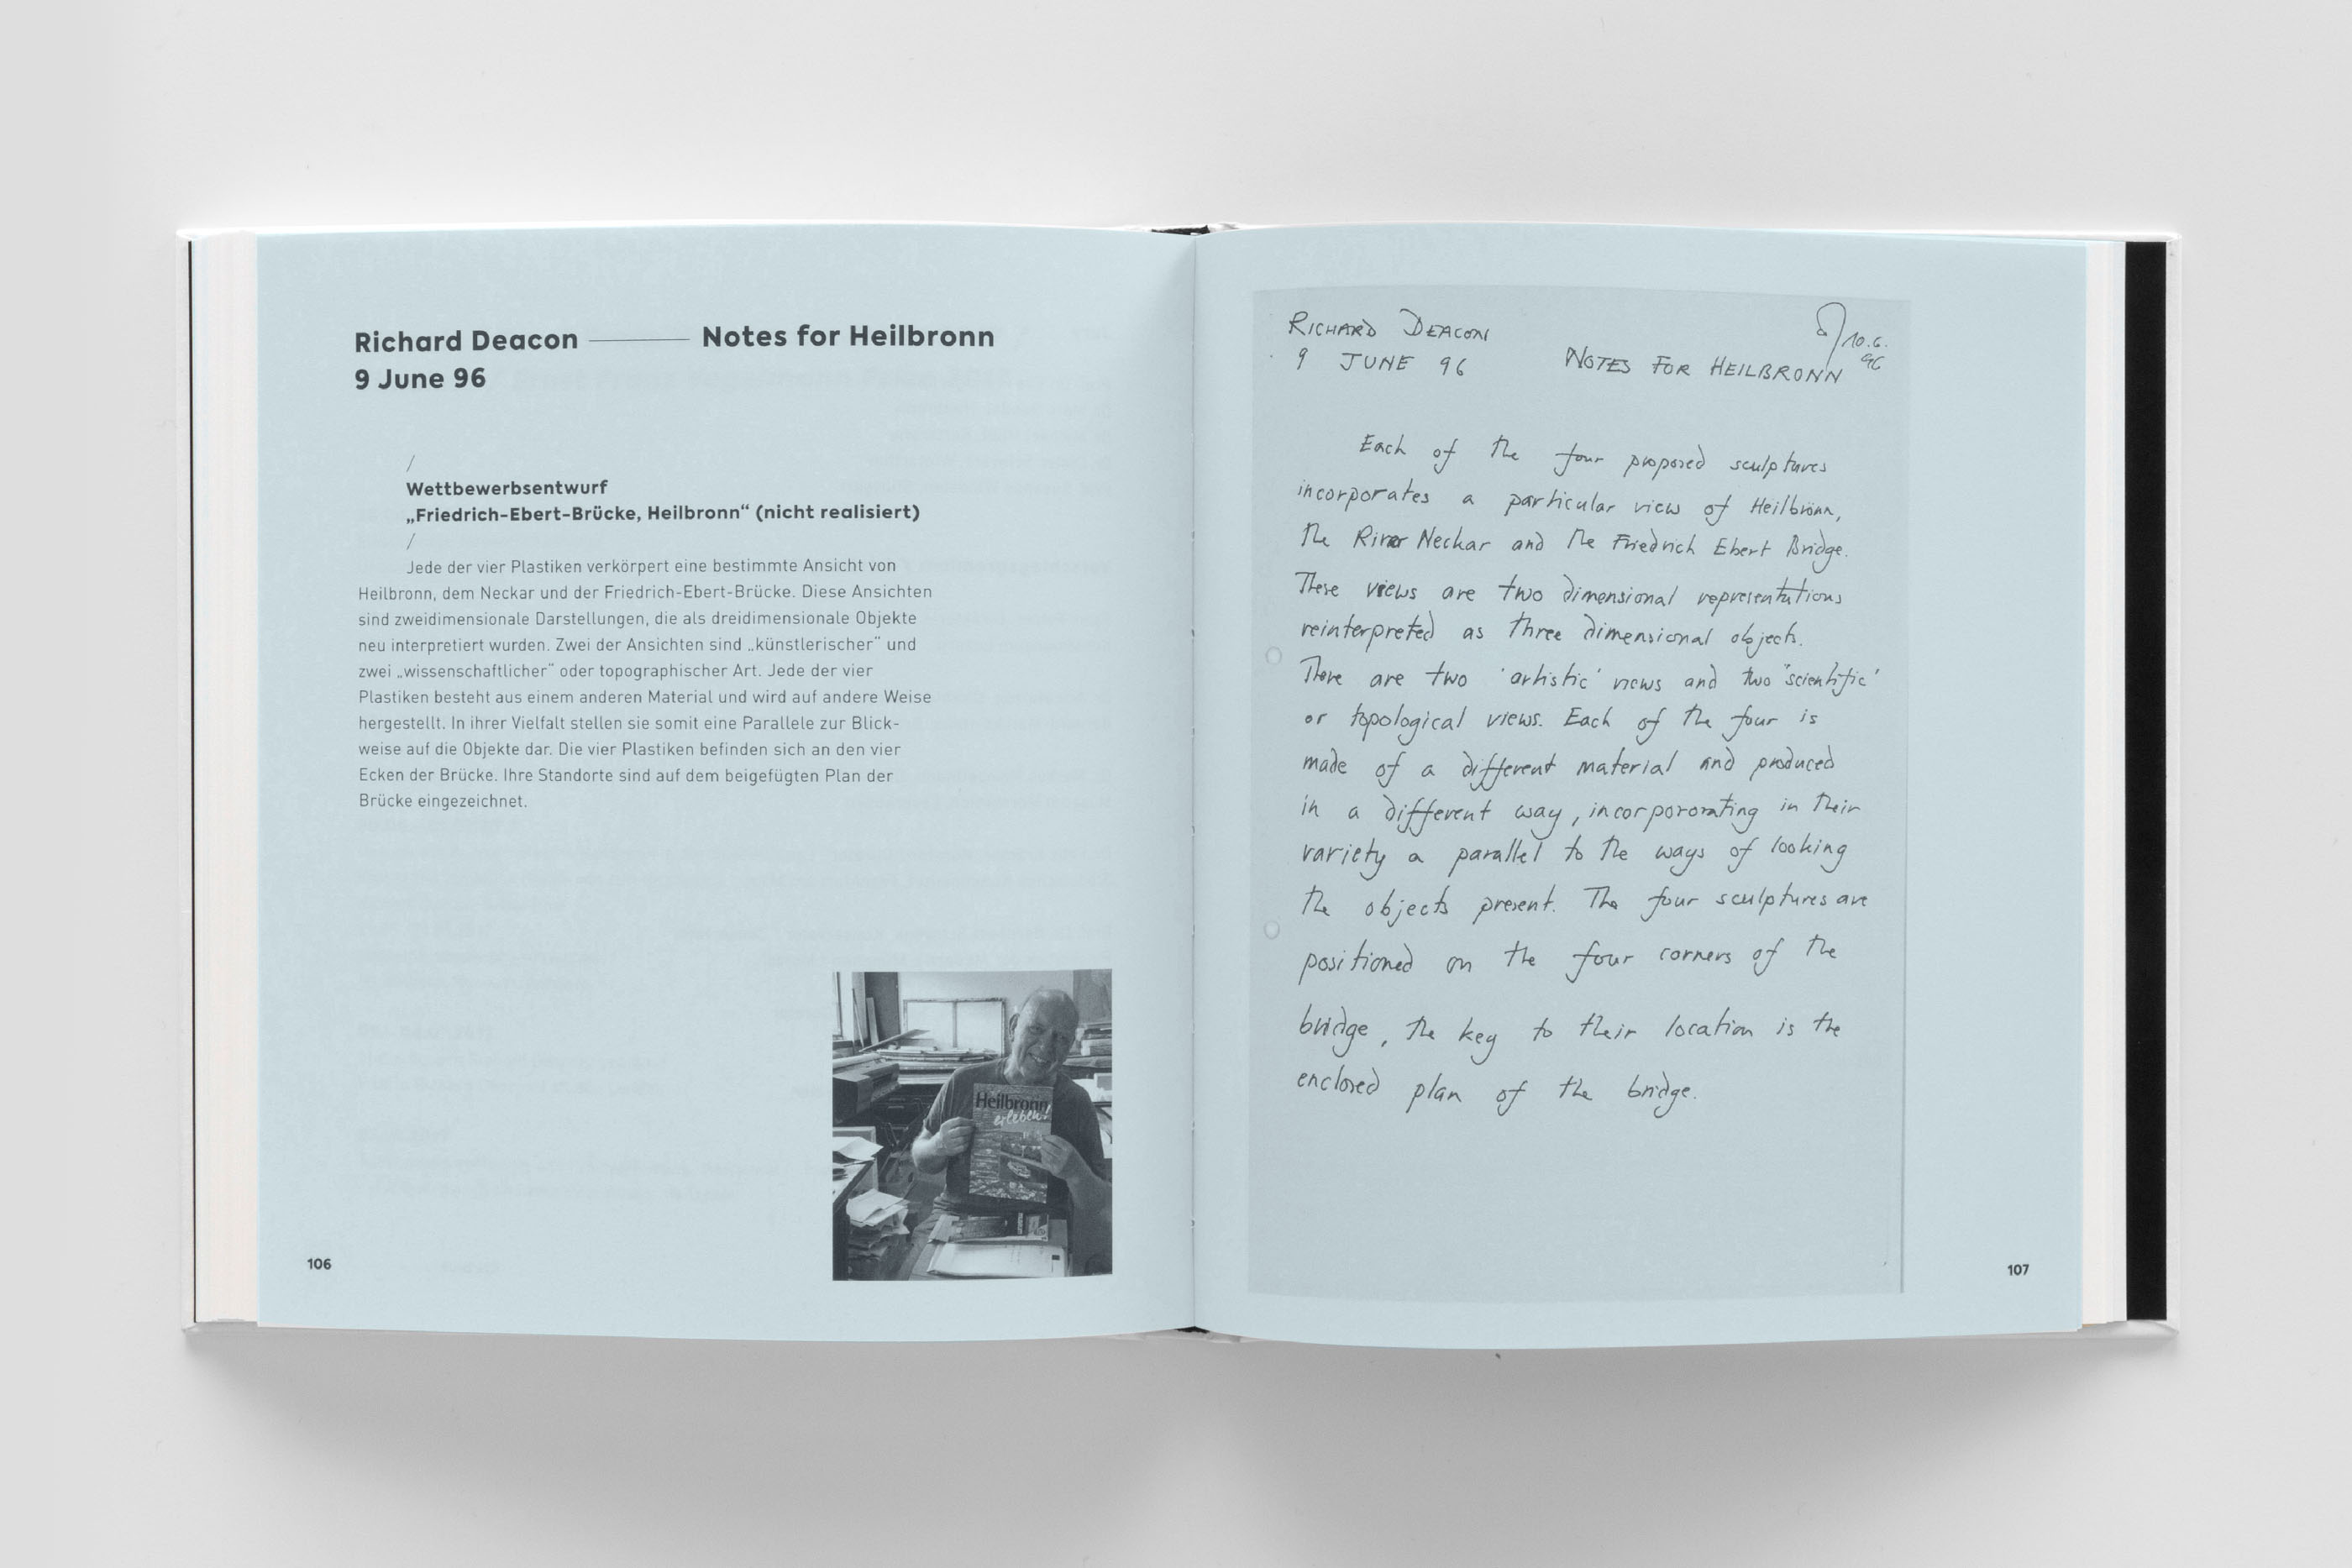 Richard Deacon —— Notes for Heilbronn
9 June 96
/
Wettbewerbsentwurf
„Friedrich-Ebert-Brücke, Heilbronn“ (nicht realisiert)
/
Jede der vier Plastiken verkörpert eine bestimmte Ansicht von
Heilbronn, dem Neckar und der Friedrich-Ebert-Brücke. Diese Ansichten
sind zweidimensionale Darstellungen, die als dreidimensionale Objekte
neu interpretiert wurden. Zwei der Ansichten sind „künstlerischer“ und
zwei „wissenschaftlicher“ oder topographischer Art. Jede der vier
Plastiken besteht aus einem anderen Material und wird auf andere Weise
hergestellt. In ihrer Vielfalt stellen sie somit eine Parallele zur Blick-
weise auf die Objekte dar. Die vier Plastiken befinden sich an den vier
Ecken der Brücke. Ihre Standorte sind auf dem beigefügten Plan der
Brücke eingezeichnet.
Heilbronn
erleben!
106
RICHARD DEACON
10.6.
96
9 JUNE 96 NOTES FOR HEILBRONN
Each of the four proposed sculptures
incorporates a particular view of Heilbronn,
the River Neckar and the Friedrich Ebert Bridge.
These views are two dimensional representations
reinterpreted as three dimensional objects.
There are two 'artistic' views and two 'scientific'
or topological views. Each of the four is
made of a different material and produced
in a different way, incorpororating in their
variety a parallel to the ways of looking
the objects present. The four sculptures are
positioned on the four corners of the
bridge, the key to their location is the
enclosed plan of the bridge.
107